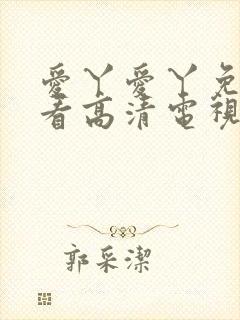 愛丫愛丫免
看高清電視
郭采潔